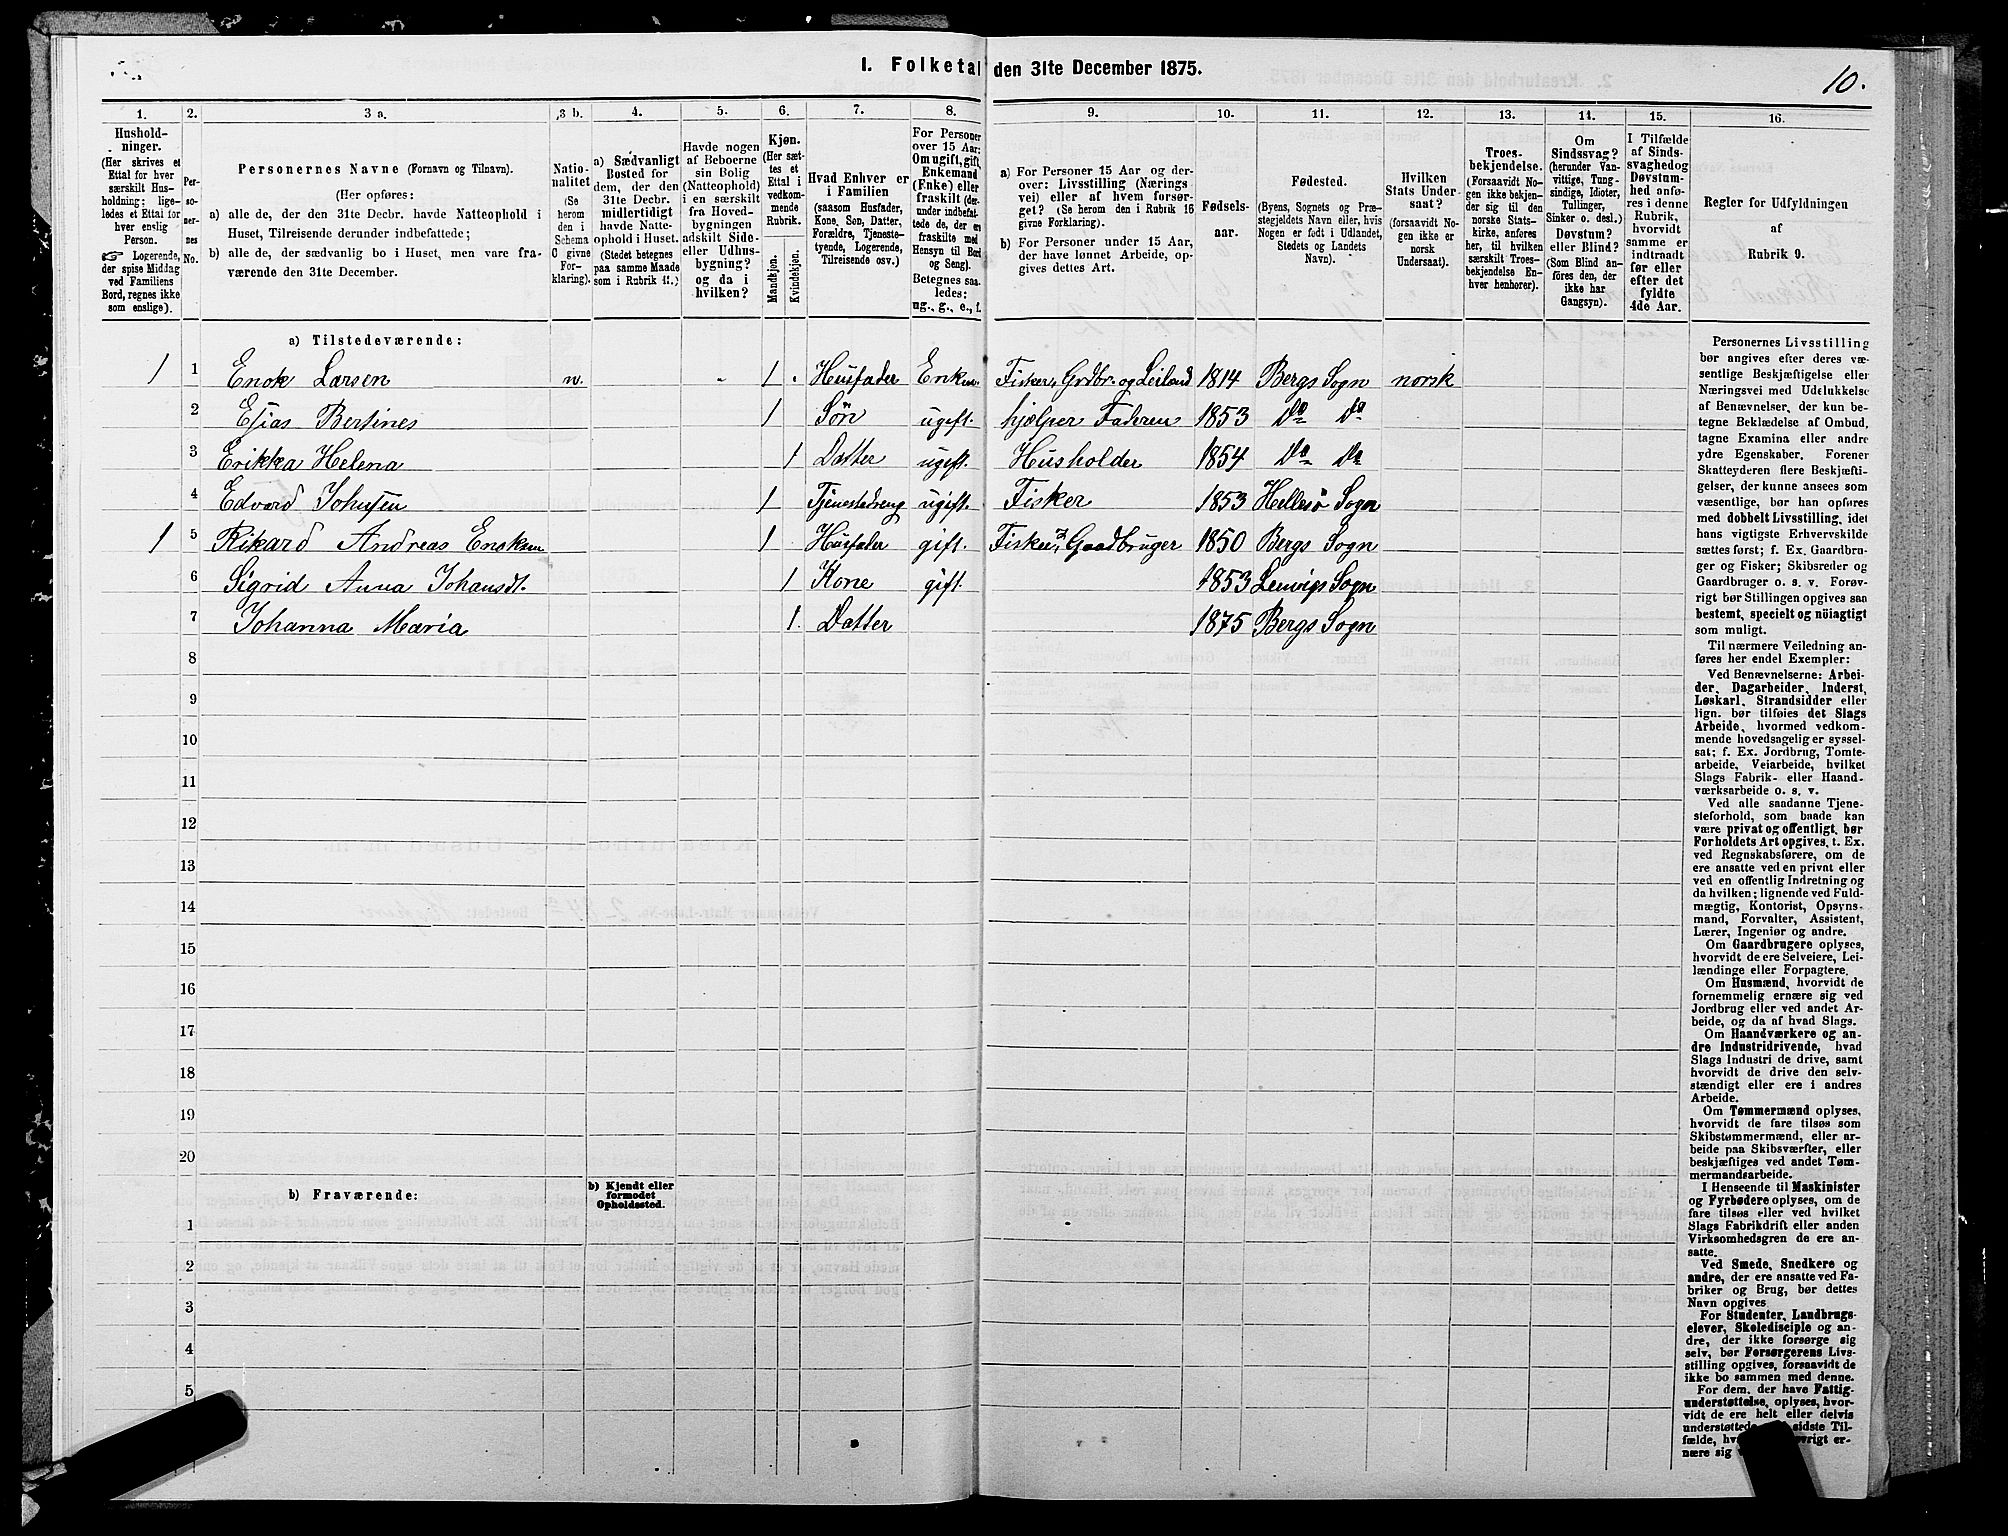 I. Folketal den 31te December 1875.
10.
1.
Hushold-
ninger.
(Her skrives et
Ettal for hver
særskilt Hus-
holdning; lige-
ledes et Ettal for
hver enslig
Person.
Logerende,
der spise Middag
ved Familiens
Bord, regnes ikke
som enslige).
2.
Per-
so-
ner-
nes
No.
3 a.
Personernes Navne (Fornavn og Tilnavn).
(Her opføres:
a) alle de, der den 31te Decbr. havde Natteophold i
Huset, Tilreisende derunder indbefattede;
b) alle de, der sædvanlig bo i Huset, men vare fra-
værende den 31te December.
3 b.
Natio-
nalitet
(Se
herom
den i
Schema
C givne
For-
klaring).
4.
a) Sædvanligt
Bosted for
dem, der den
31te Decbr.
midlertidigt
havde Natte-
ophold i Huset.
(Stedet betegnes
paa samme Maade
som i Rubrik 11.)
5.
Havde nogen
af Beboerne
sin Bolig
(Natteophold)
i en særskilt
fra Hoved-
bygningen
adskilt Side-
eller Udhus-
bygning?
og da i
hvilken?
6.
Kjøn.
(Her sæt-
tes et
Ettal i
vedkom-
mende
Rubrik.
Mandkjøn.
Kvindekjøn.
7.
Hvad Enhver er
i Familien
(saasom Husfader,
Kone, Søn, Datter,
Forældre, Tjeneste-
tyende, Logerende,
Tilreisende osv.)
8.
For Personer
over 15 Aar:
Om ugift, gift,
Enkemand
(Enke) eller
fraskilt (der-
under indbefat-
tede de, der ere
fraskilte med
Hensyn til Bord
og Seng).
Betegnes saa-
ledes:
ug., g., e., f.
9.
a) For Personer 15 Aar og der-
over: Livsstilling (Nærings-
vei) eller af hvem forsør-
get? (Se herom den i Rubrik 16
givne Forklaring).
b) For Personer under 15 Aar,
der have lønnet Arbeide, op-
gives dettes Art.
10.
Fødsels-
aar.
11.
Fødested.
(Byens, Sognets og Præ-
stegjeldets Navn eller, hvis
Nogen er født i Udlandet,
Stedets og Landets
Navn).
12.
Hvilken
Stats Under-
saat?
(forsaavidt No-
gen ikke er
norsk
Undersaat).
13.
Troes-
bekjendelse.
(Forsaavidt No-
gen ikke bekjen-
der sig til den
norske Stats-
kirke, anføres
her, til hvilken
særskilt Troes-
bekjendelse En-
hver henhører).
14.
Om
Sindssvag?
(herunder Van-
vittige, Tung-
sindige, Idioter,
Tullinger,
Sinker o. desl.)
Døvstum?
eller Blind?
(Som Blind an-
føres den, der
ikke har
Gangsyn).
15.
I Tilfælde
af Sinds-
svaghed og
Døvstum-
hed anfø-
res i denne
Rubrik,
hvorvidt
samme er
indtraadt
før eller
efter det
fyldte
4de Aar.
16.
Regler for Udfyldningen
af
Rubrik 9.
a) Tilstedeværende:
1 1 Enok Larsen n. 1 Husfader Enkem. Fisker, Grdbr. og Leilænd 1814 Bergs Sogn norsk
2 Elias Bertines 1 Søn ugift. hjælper Faderen 1853 Do Do
3 Erikka Helena 1 Datter ugift. Husholder 1854 Do Do
4 Edvard Johnsen 1 Tjenestedreng ugift. Fisker 1853 Hellesø Sogn
1 5 Rikard Andreas Enoksen 1 Husfader gift. Fisker, Gaardbruger 1850 Bergs Sogn
6 Sigrid Anna Johansdt. 1 Kone gift. 1853 Lenvigs Sogn
7 Johanna Maria 1. Datter 1875 Bergs Sogn
8
9
10
11
12
13
14
15
16
17
18
19
20
b) Fraværende:
b) Kjendt eller
formodet
Opholdssted.
1
2
3
4
5
Personernes Livsstilling
bør angives efter deres væ-
sentlige Beskjæftigelse eller
Næringsvei med Udelukkelse
af Benævnelser, der kun be-
tegne Beklædelse af Ombud,
tagne Examina eller andre
ydre Egenskaber. Forener
Skatteyderen flere Beskjæfti-
gelser, der kunne ansees som
væsentlige, bør han opføres
med dobbelt Livsstilling, idet
hans vigtigste Erhvervskilde
sættes først; f. Ex. Gaardbru-
ger og Fisker; Skibsreder og
Gaardbruger o. s. v. Forøv-
rigt bør Stillingen opgives saa
bestemt, specielt og nöiagtigt
som muligt.
Til nærmere Veiledning an-
føres her endel Exempler:
Ved Benævnelserne: Arbei-
der, Dagarbeider, Inderst,
Løskarl, Strandsidder eller
lign. bør tilføies det Slags
Arbeide, hvormed vedkom-
mende hovedsagelig er syssel-
sat; f. Ex. Jordbrug, Tomte-
arbeide, Veiarbeide, hvilket
Slags Fabrik- eller Haand-
værksarbeide o. s. v.
Ved alle saadanne Tjene-
steforhold, som baade kan
være privat og offentligt, bør
Forholdets Art opgives, t. Ex.
ved Regnskabsførere, om de
ere ansatte ved en privat eller
ved en offentlig Indretning og
da hvilken; lignende ved Fuld-
mægtig, Kontorist, Opsyns-
mand, Forvalter, Assistent,
Lærer, Ingeniør og andre.
Om Gaardbrugere oplyses,
hvorvidt de ere Selveiere, Lei-
lændinge eller Forpagtere.
Om Husmænd, hvorvidt de
fornemmelig ernære sig ved
Jordbrug eller ved andet Ar-
beide, og da af hvad Slags.
Om Haandværkere og an-
dre Industridrivende, hvad
Slags Industri de drive, samt
hvorvidt de drive den selv-
stændigt eller ere i andres
Arbeide.
Om Tømmermænd oplyses,
hvorvidt de fare tilsøs som
Skibstømmermænd, eller ar-
beide paa Skibsværfter, eller
beskjæftiges ved andet Tøm-
mermandsarbeide.
I Henseende til Maskinister
og Fyrbødere oplyses, om de
fare tilsøs eller ved hvilket
Slags Fabrikdrift eller anden
Virksomhedsgren de ere an-
satte.
Ved Smede, Snedkere og
andre, der ere ansatte ved Fa-
briker og Brug, bør dettes
Navn opgives
For Studenter, Landbrugs-
elever, Skoledisciple og an-
dre, der ikke forsørge sig
selv, bør Forsørgerens Livs-
stilling opgives, forsaavidt de
ikke bo sammen med denne.
For dem, der have Fattig-
understøttelse, oplyses, hvor-
vidt de ere helt eller delvis
understøttede sidste Til-
fælde, øvrigt er-
nære sig